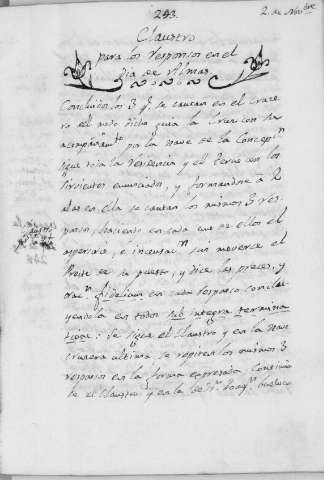 243.
2. de Nov.bre
Claustro
para los Responsos en el
Dia de Almas
Concluidos los 3 q.e se cantan en el Cruze-
ro el modo dicho guia la Cruz con su
acompañam.to por la nave de la Concep.n
sigue toda la Residencia y el Preste con los
Sirvientes enunciados, y formandose a 2
alas en ella se cantan los mismos 3 res-
ponsos, haciendo en cada uno de ellos el
aspersorio, è incensac.n sin moverse el
Preste de su puesto, y dice las preces, y
orac.n fidelium en cada responso conclu-
yendola en todos sub integra termina-
tione: Se sigue el Claustro y en la nave
crucera ultima se repiten los mismos 3
responsos en la forma expresada. Continúa-
se el Claustro y en la de